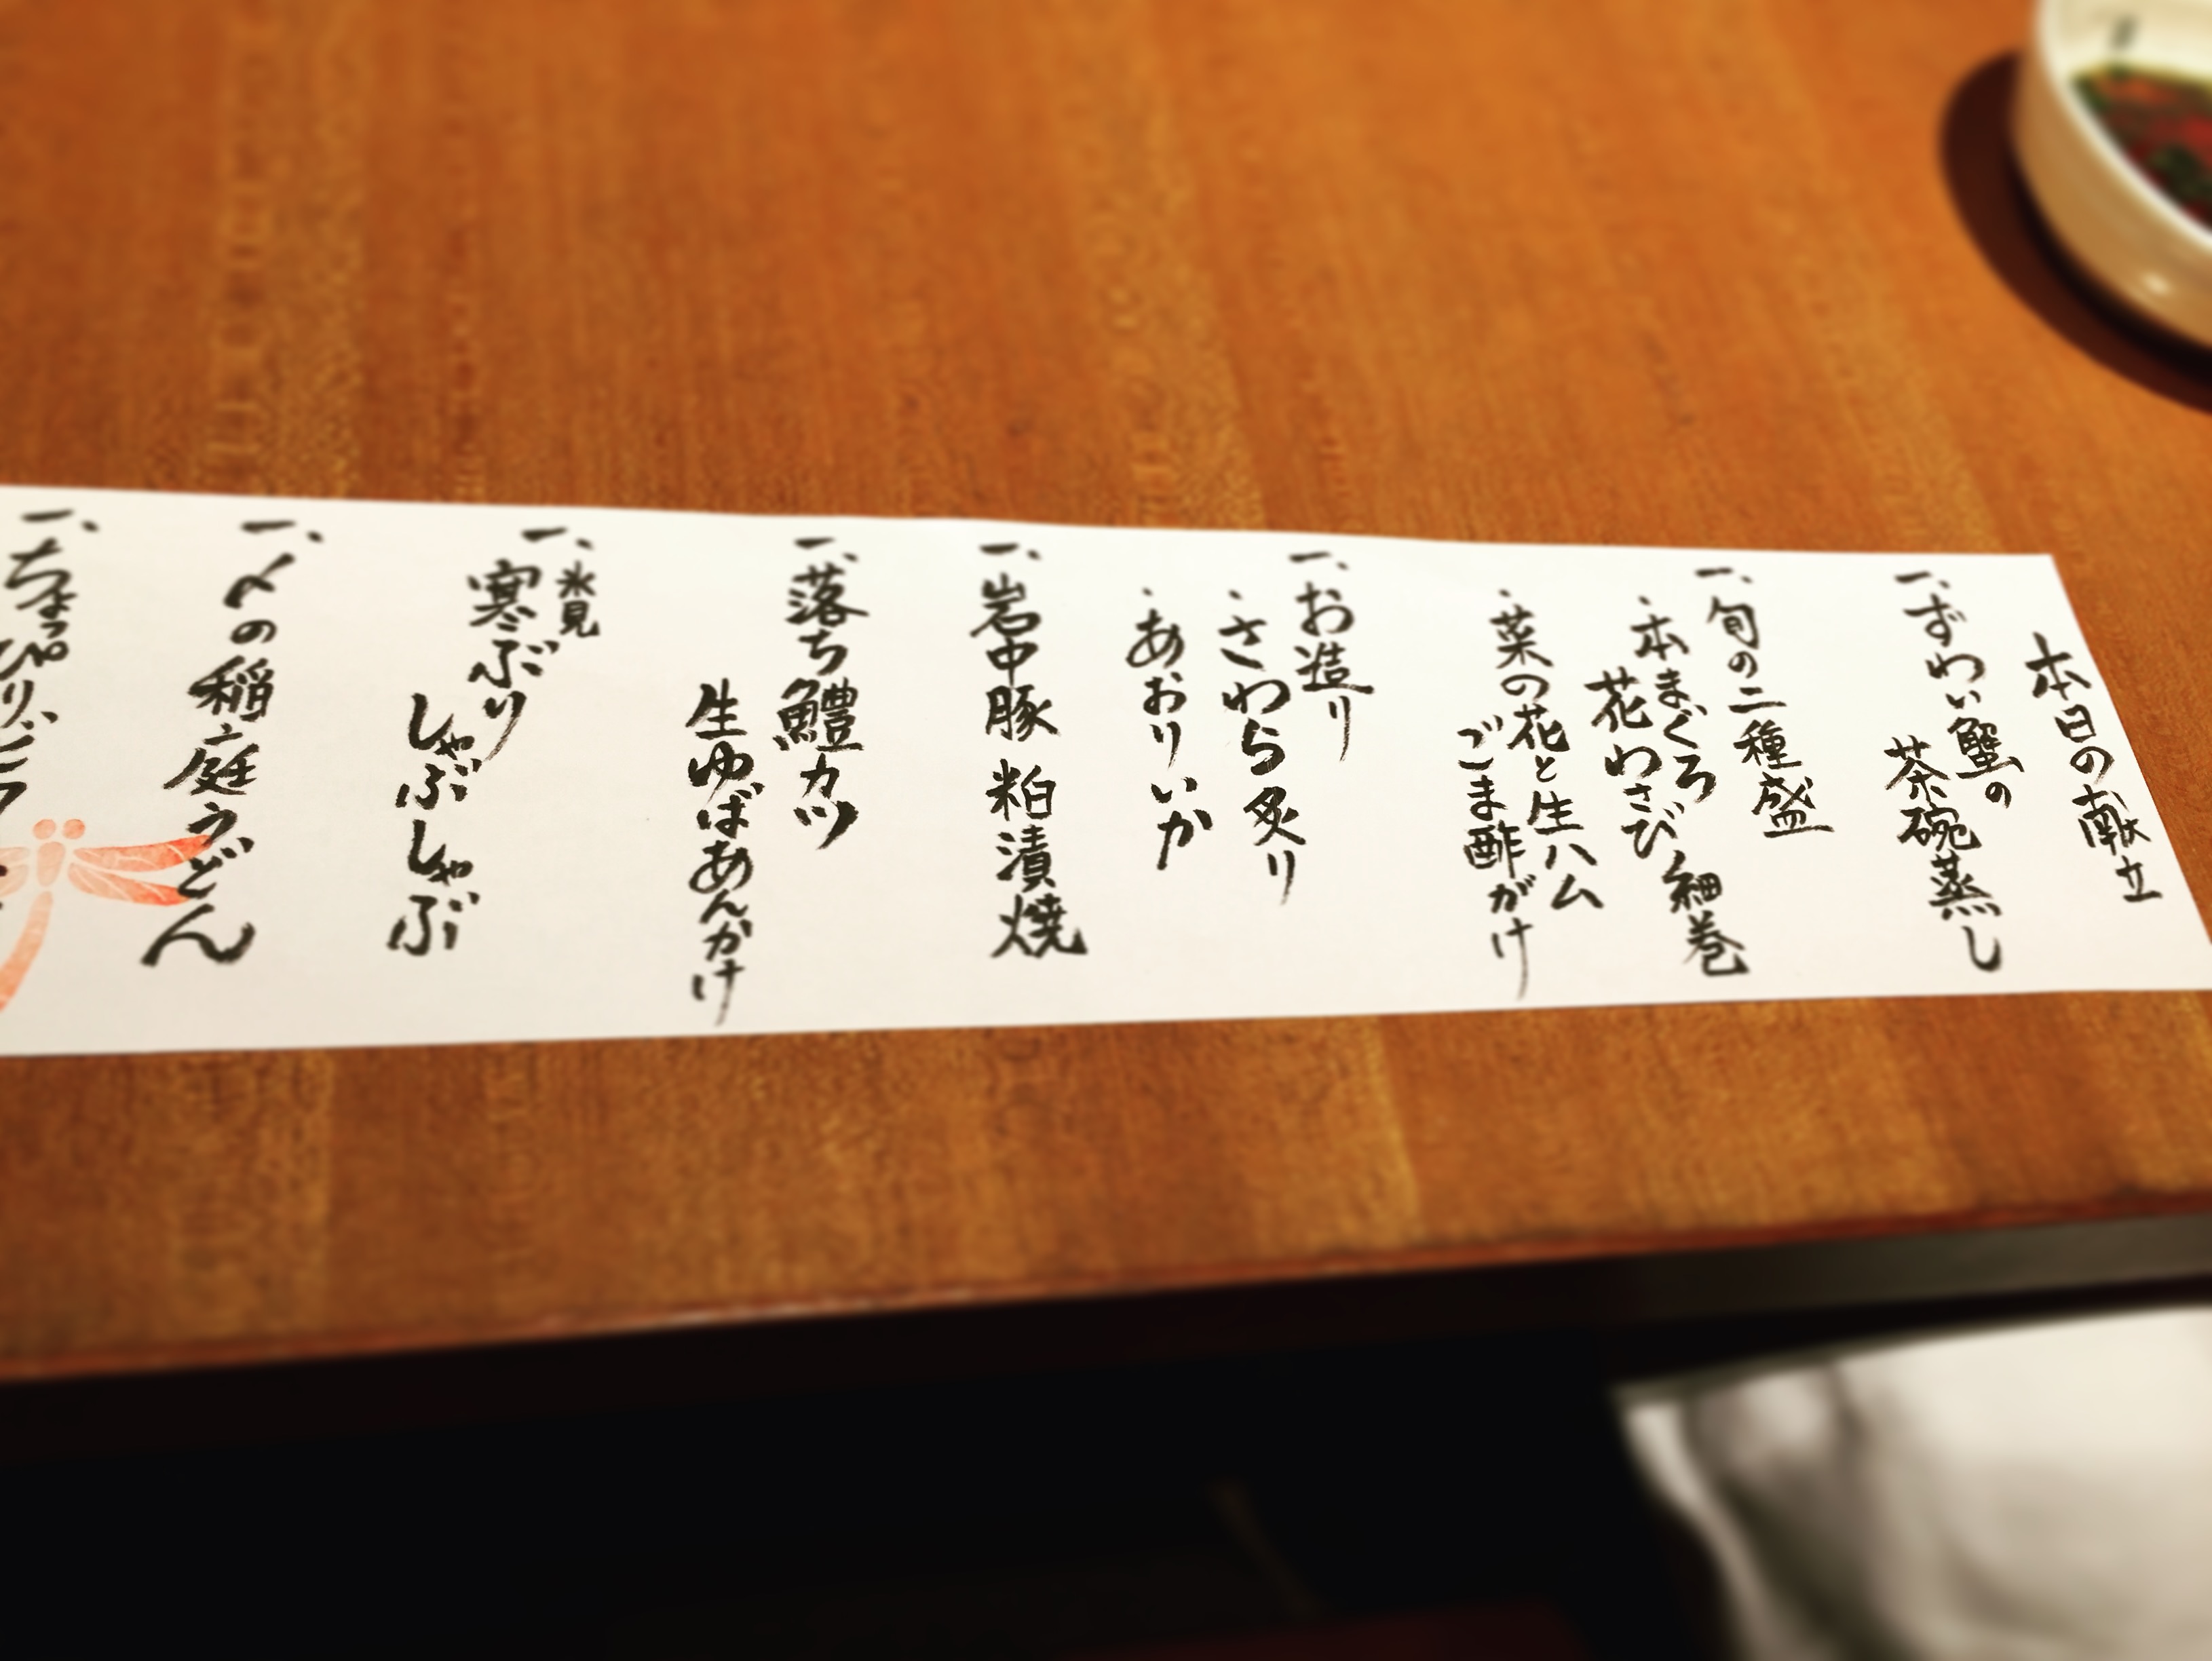 本日の献立
一、ずわい蟹の
茶碗蒸し
一、旬の二種盛
・本まぐろ
花わさび細巻
・菜の花と生ハム
ごま酢がけ
一、お造り
・さわら炙り
・あおりいか
一、岩中豚 粕漬焼
一、落ち鱧カツ
生ゆばあんかけ
一、氷見
寒ぶり
しゃぶしゃぶ
一、〆の稲庭うどん
一、ちょっぴり